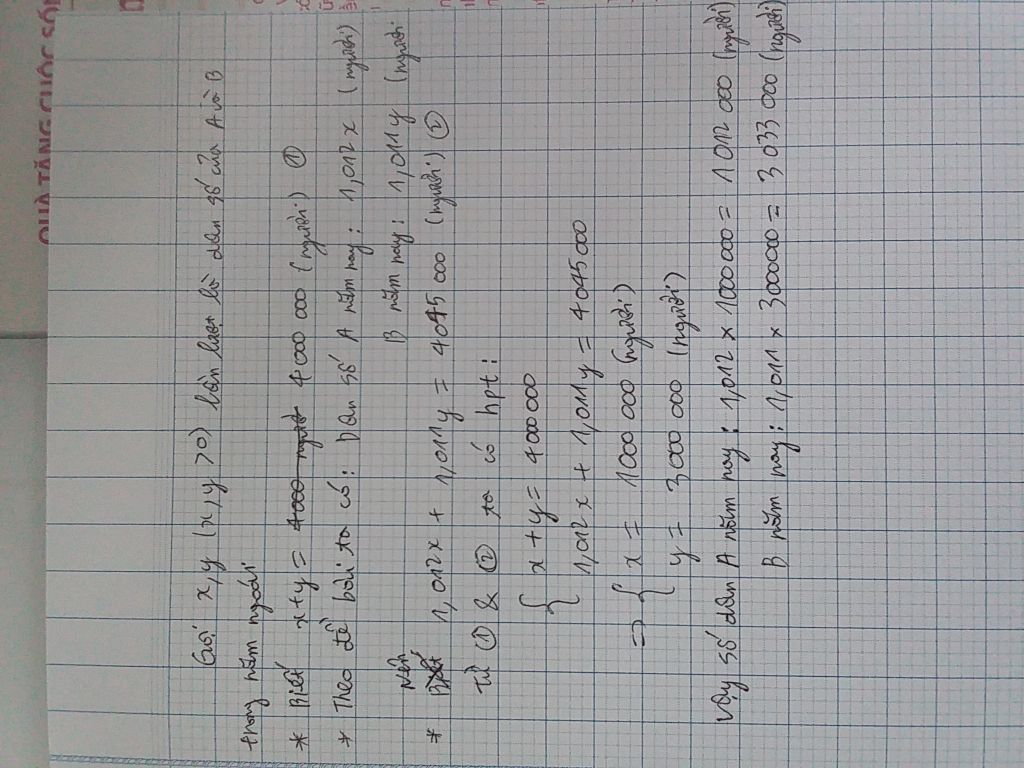 QUÀ TẶNG CUỘC SỐNG
Gọi x,y (x,y >0) lần lượt là dân số của A và B
trong năm ngoái
* Biết x+y = 4000 người 4 000 000 (người) ①
* Theo đề bài ta có: Dân số A năm nay: 1,012x (người)
B năm nay: 1,011y (người)
Nên
* Biết 1,012x + 1,011y = 4 045 000 (người) ②
Từ ① & ② ta có hpt:
{ x+y = 4 000 000
1,012x + 1,011y = 4 045 000
=> { x = 1 000 000 (người)
y = 3 000 000 (người)
Vậy số dân A năm nay: 1,012 x 1000 000 = 1 012 000 (người)
B năm nay: 1,011 x 3000000 = 3 033 000 (người)